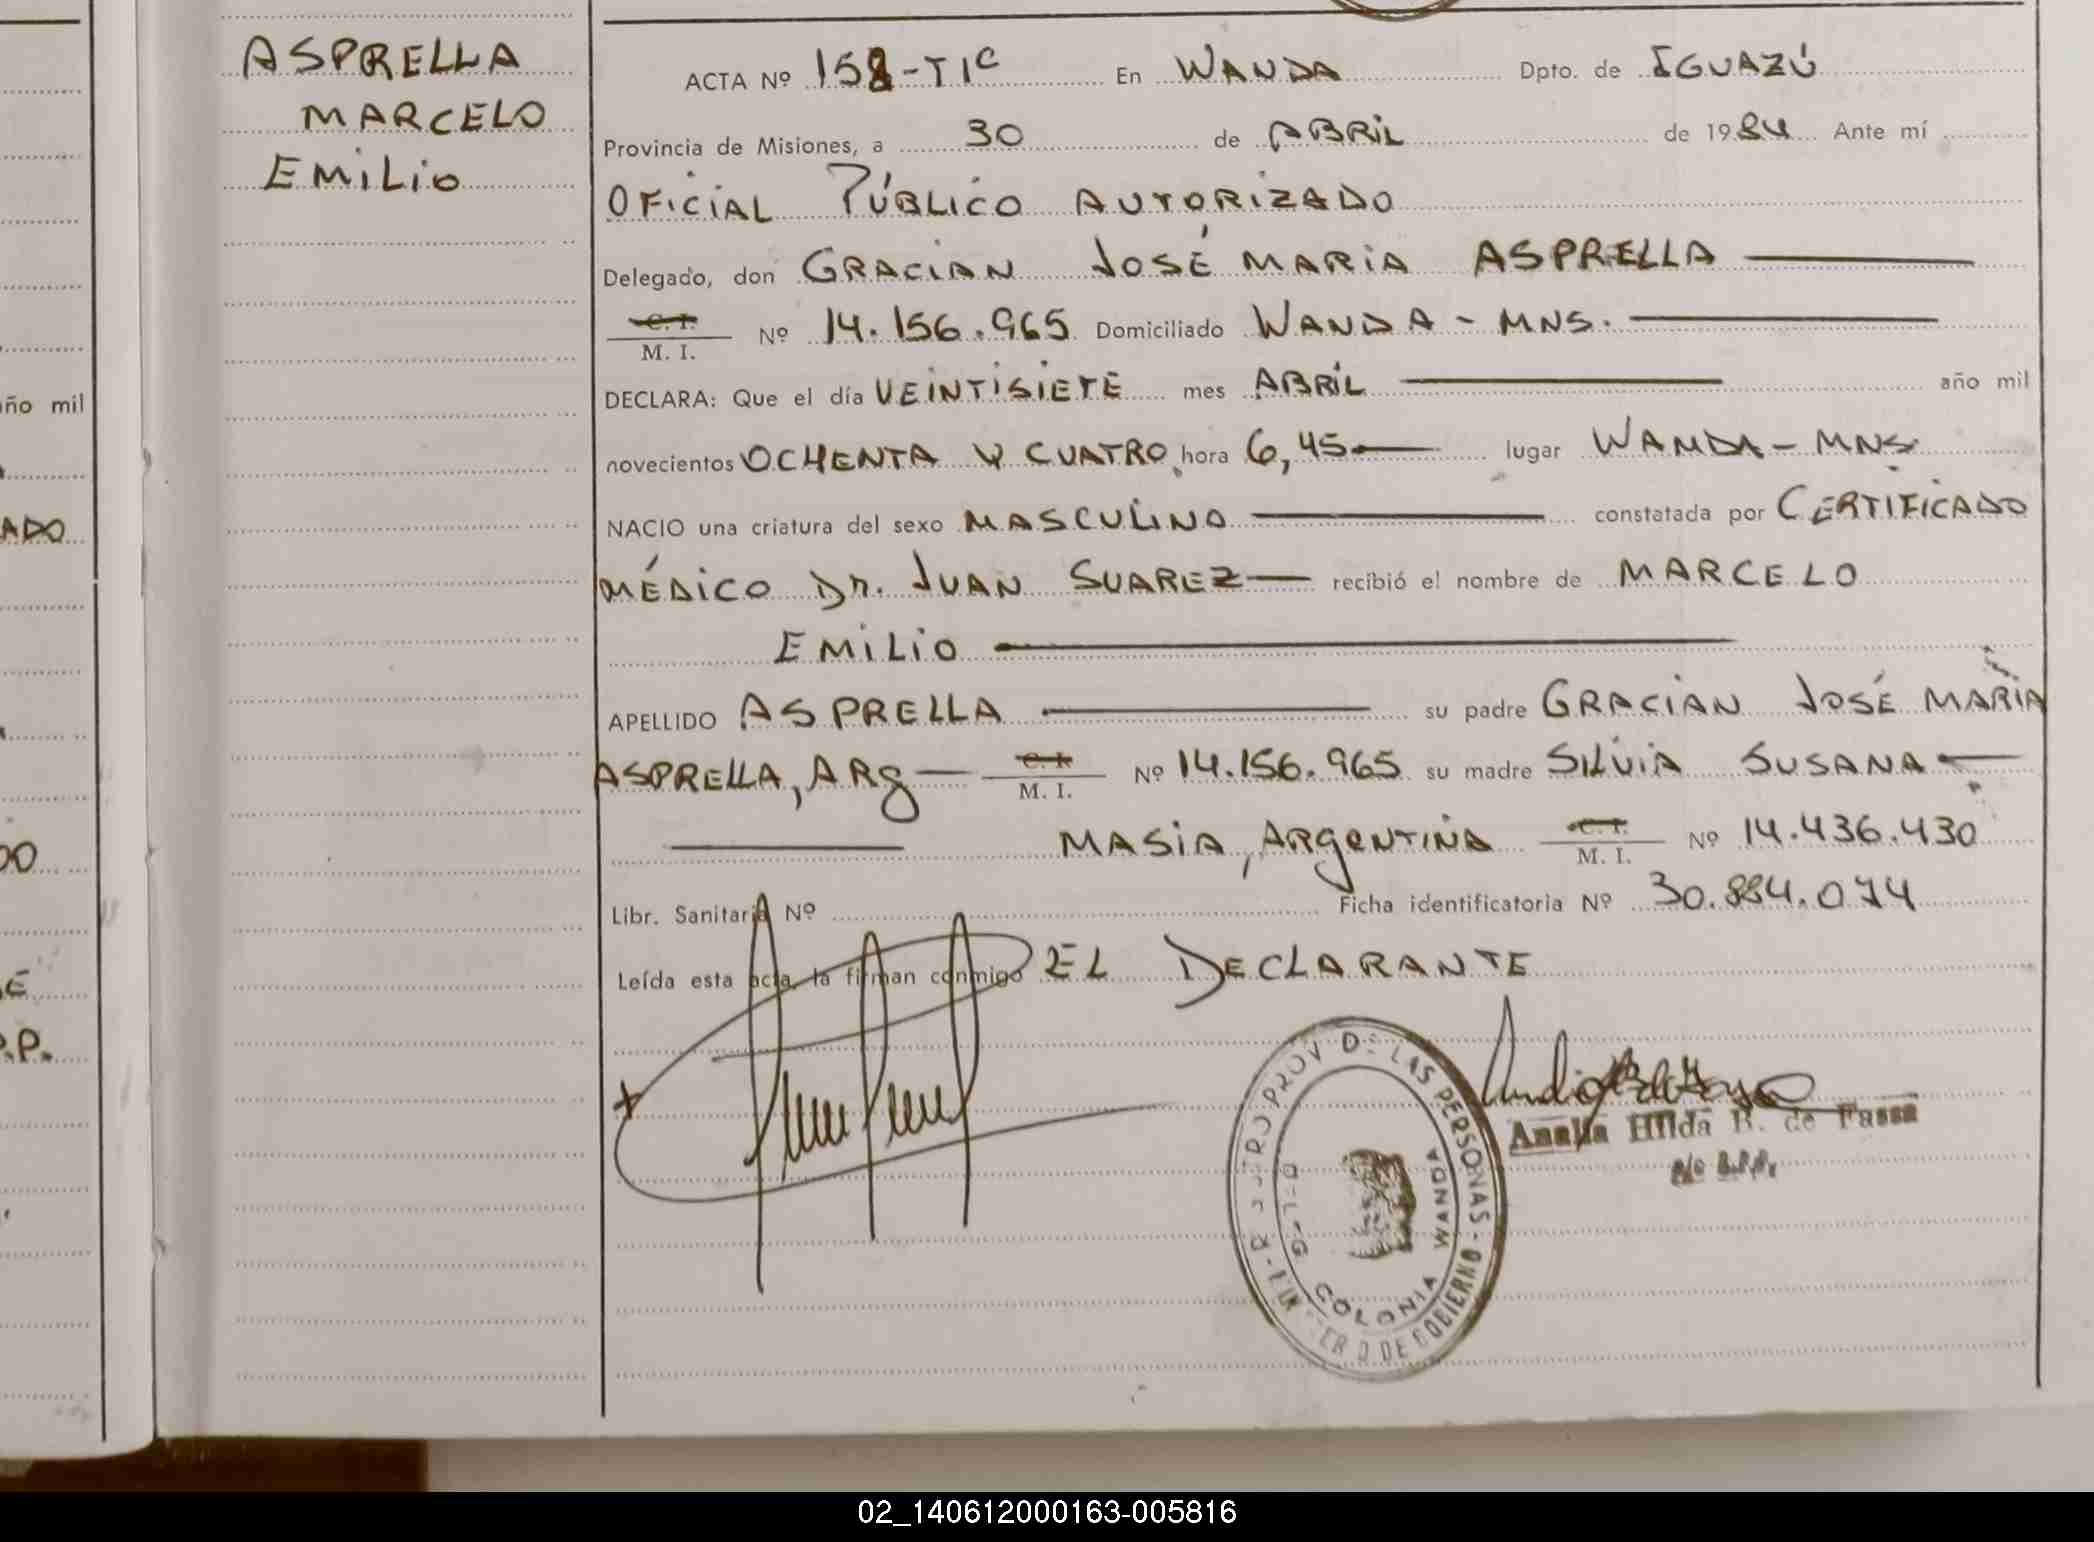 ASPRELLA
MARCELO
EMILIO
ño mil
ADO
DO
E
P.P.
ACTA Nº 158-TIC En WANDA Dpto. de IGUAZÚ
Provincia de Misiones, a 30 de ABRIL de 1984 Ante mí
OFICIAL PÚBLICO AUTORIZADO
Delegado, don GRACIAN JOSÉ MARIA ASPRELLA
C. I.
M. I. Nº 14.156.965 Domiciliado WANDA - MNS.
DECLARA: Que el día VEINTISIETE mes ABRIL año mil
novecientos OCHENTA Y CUATRO hora 6,45 lugar WANDA - MNS
NACIO una criatura del sexo MASCULINO constatada por CERTIFICADO
MÉDICO Dr. JUAN SUAREZ recibió el nombre de MARCELO
EMILIO
APELLIDO ASPRELLA su padre GRACIAN JOSÉ MARIA
ASPRELLA, ARg C. I. M. I. Nº 14.156.965 su madre SILVIA SUSANA
MASIA, ARgENTINA C. I. M. I. Nº 14.436.430
Libr. Sanitaria Nº Ficha identificatoria Nº 30.884.074
Leída esta acta, la firman conmigo EL DECLARANTE
PROV DE LAS PERSONAS - DE GOBIERNO
COLONIA WANDA
Analia Hilda B. de Fassa
02_140612000163-005816